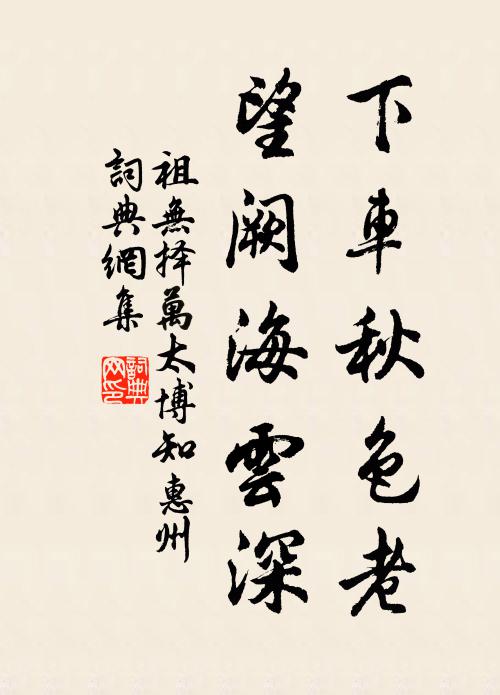 下車秋色老
望闕海雲深
祖無择萬太博知惠州
詞典網集
詞典
网印